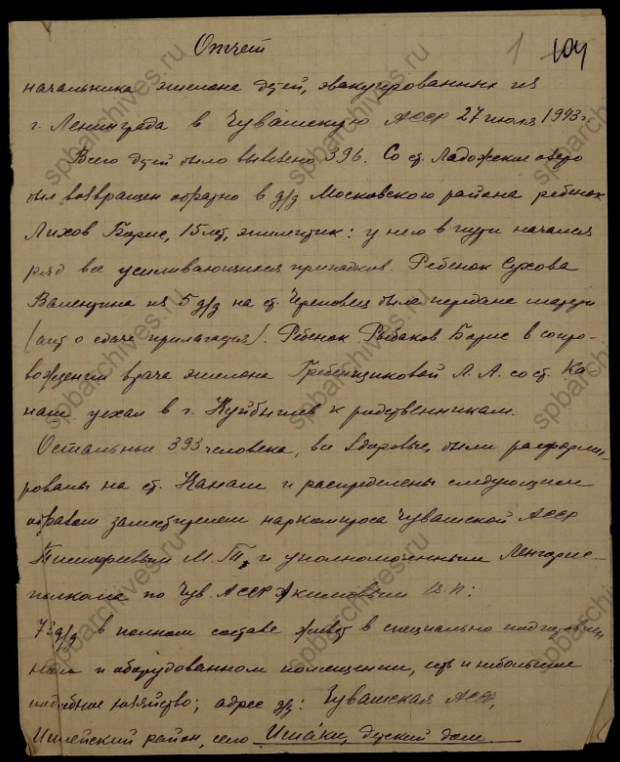 Отчет
1 104
начальника эшелона детей, эвакуированных из
г. Ленинграда в Чувашскую АССР 27 июля 1943 г.
Всего детей было вывезено 396. Со ст. Ладожское озеро
был возвращен обратно в д/д Московского района ребенок
Лихов Борис, 15 лет, эпилептик: у него в пути начался
ряд все усиливающихся припадков. Ребенок Сухова
Валентина из 5 д/д на ст. Череповец была передана матери
(акт о сдаче прилагается). Ребенок Рыбаков Борис в сопро-
вождении врача эшелона Гребенщиковой А. А. со ст. Ка
наш уехал в г. Куйбышев к родственникам.
Остальные 393 человека, все здоровые, были расформи-
рованы на ст. Канаш и распределены следующим
образом заместителем наркомпроса Чувашской АССР
Тимофеевым М. Т. и уполномоченным Ленгорис-
полкома по Чув. АССР Акимовым В. П.:
73 д/д в полном составе живет в специально подготовлен
ном и оборудованном помещении, есть и небольшое
подсобное хозяйство; адрес д/д: Чувашская АССР,
Ишлейский район, село Ишаки, детский дом
spbarchives.ru
spbarchives.ru
spbarchives.ru
spbarchives.ru
spbarchives.ru
spbarchives.ru